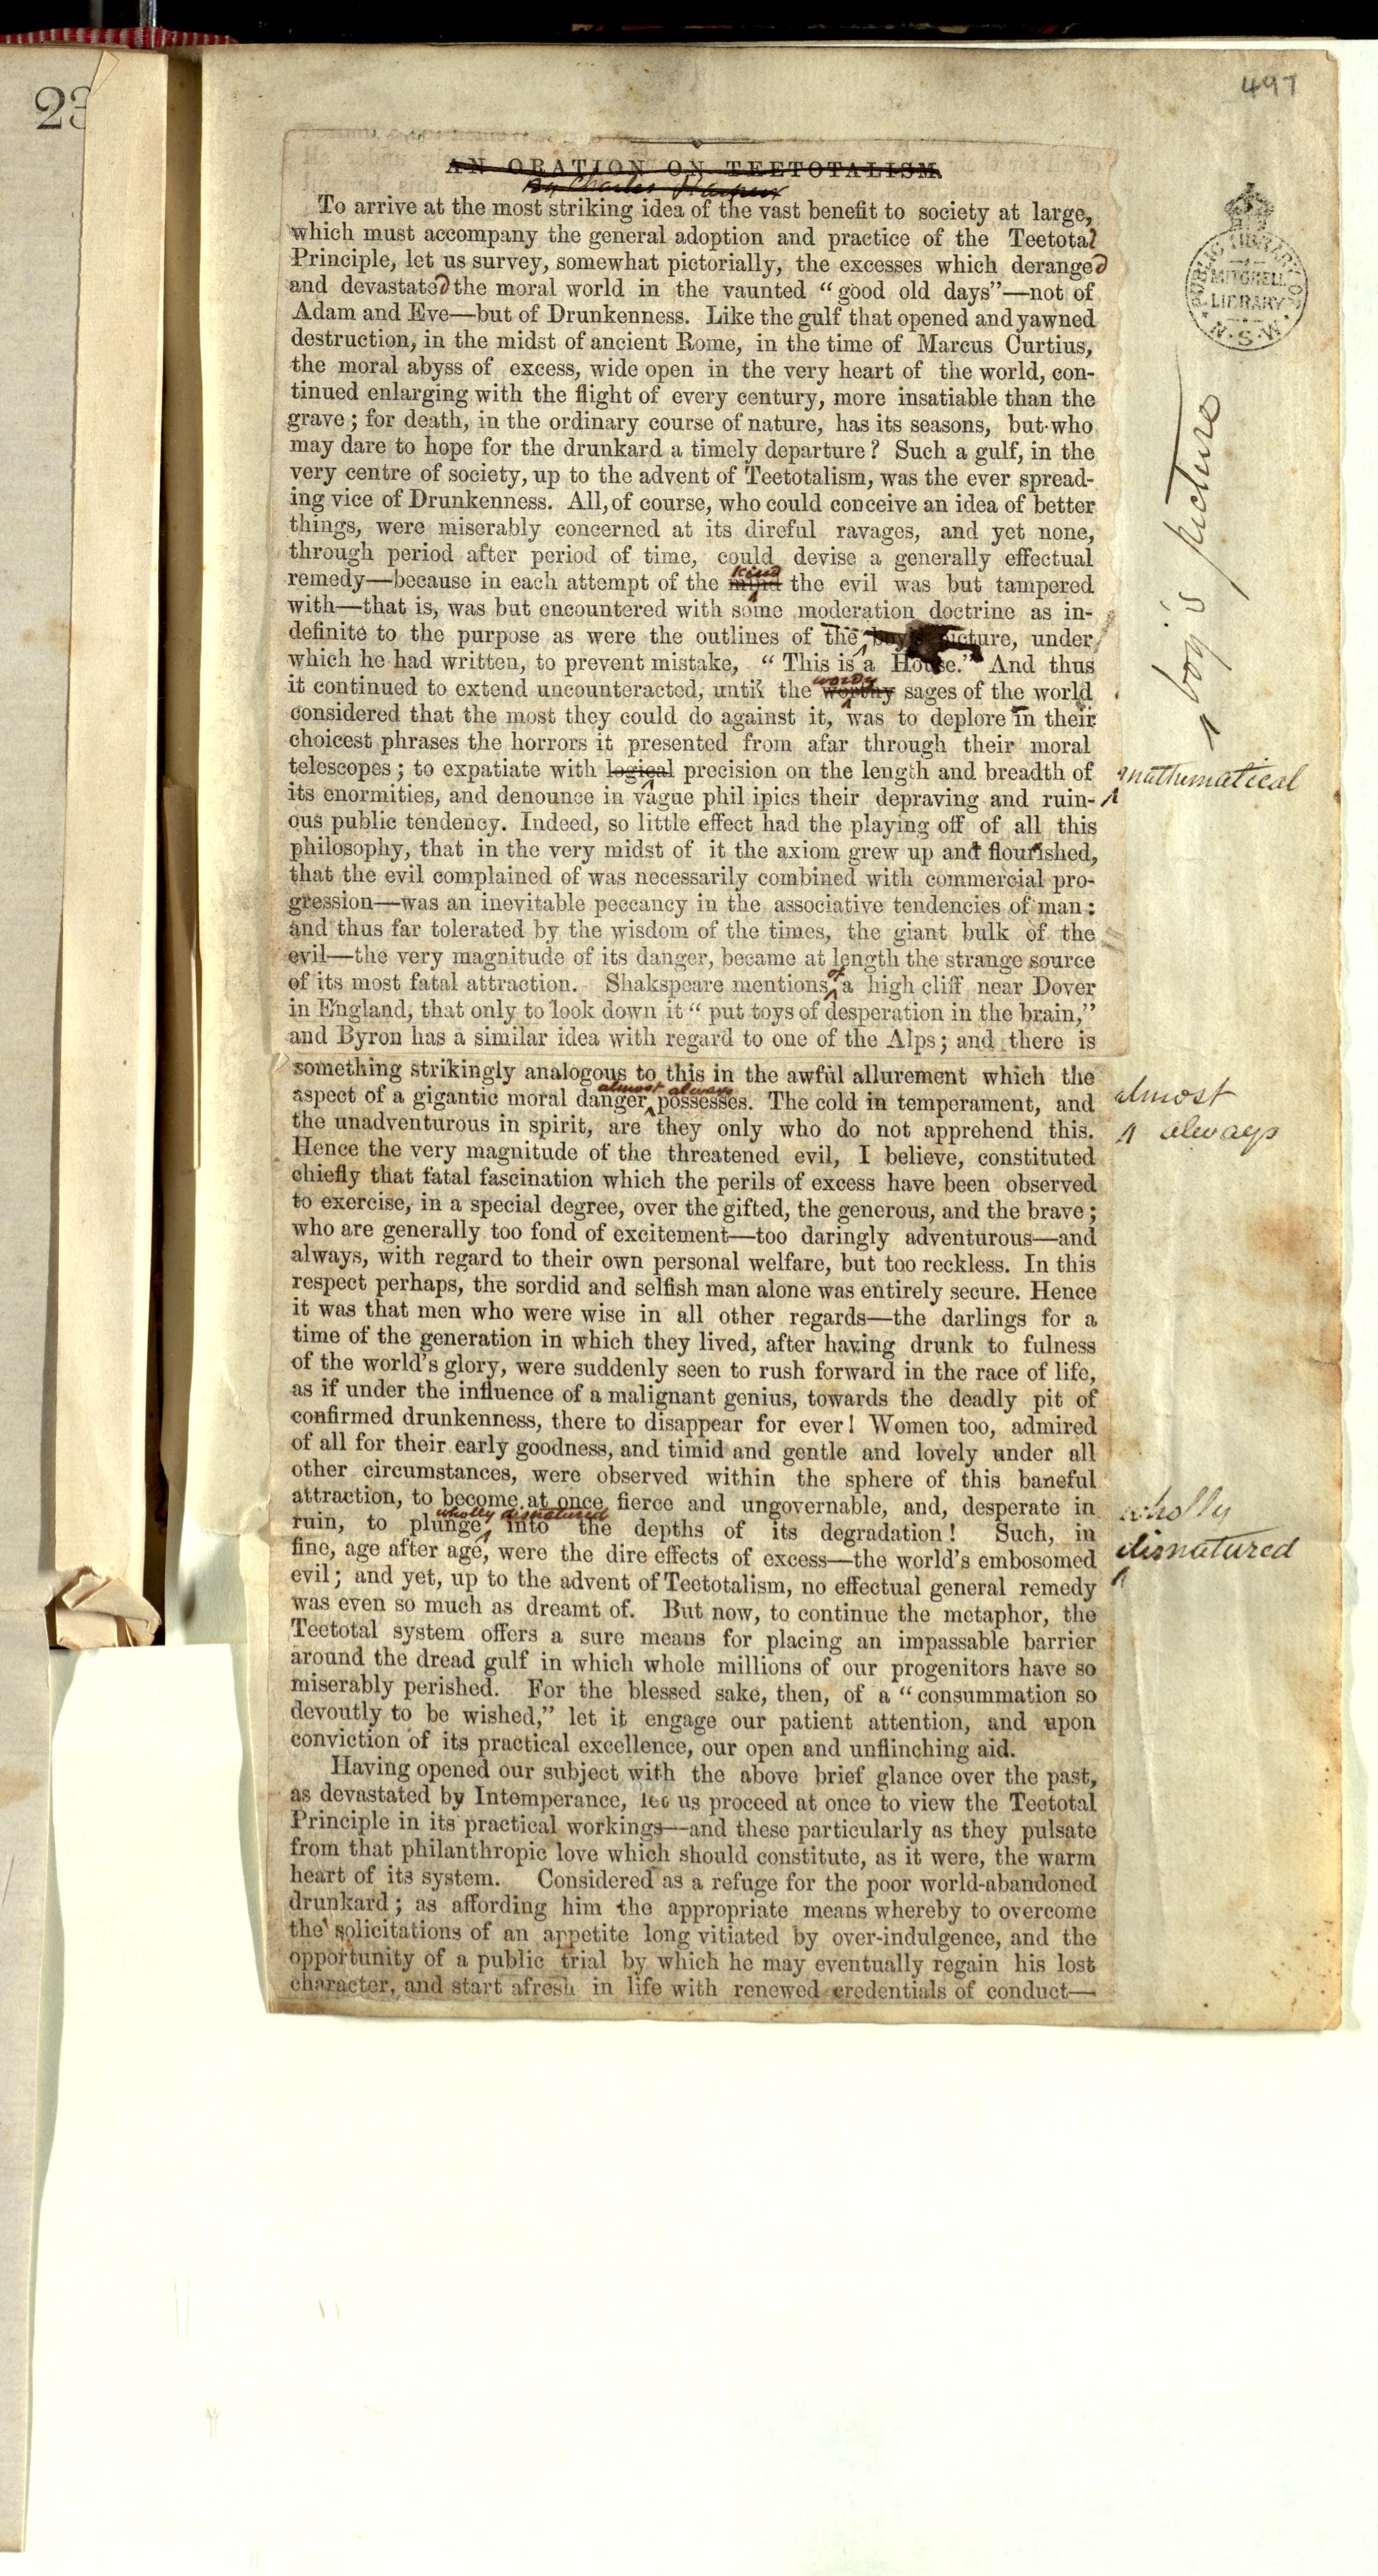 23
497
AN ORATION ON TEETOTALISM.
By Charles Harpur
To arrive at the most striking idea of the vast benefit to society at large,
which must accompany the general adoption and practice of the Teetotal
Principle, let us survey, somewhat pictorially, the excesses which deranged
and devastated the moral world in the vaunted “good old days”—not of
Adam and Eve—but of Drunkenness. Like the gulf that opened and yawned
destruction, in the midst of ancient Rome, in the time of Marcus Curtius,
the moral abyss of excess, wide open in the very heart of the world, con-
tinued enlarging with the flight of every century, more insatiable than the
grave; for death, in the ordinary course of nature, has its seasons, but who
may dare to hope for the drunkard a timely departure? Such a gulf, in the
very centre of society, up to the advent of Teetotalism, was the ever spread-
ing vice of Drunkenness. All, of course, who could conceive an idea of better
things, were miserably concerned at its direful ravages, and yet none,
through period after period of time, could devise a generally effectual
kind
remedy—because in each attempt of the mind the evil was but tampered
with—that is, was but encountered with some moderation doctrine as in-
definite to the purpose as were the outlines of the boy's picture, under
which he had written, to prevent mistake, “This is a House.” And thus
wordy
it continued to extend uncounteracted, until the worthy sages of the world
considered that the most they could do against it, was to deplore in their
choicest phrases the horrors it presented from afar through their moral
telescopes; to expatiate with logical precision on the length and breadth of
its enormities, and denounce in vague phil ipics their depraving and ruin-
ous public tendency. Indeed, so little effect had the playing off of all this
philosophy, that in the very midst of it the axiom grew up and flourished,
that the evil complained of was necessarily combined with commercial pro-
gression—was an inevitable peccancy in the associative tendencies of man:
and thus far tolerated by the wisdom of the times, the giant bulk of the
evil—the very magnitude of its danger, became at length the strange source
of
of its most fatal attraction. Shakspeare mentions a high cliff near Dover
in England, that only to look down it “put toys of desperation in the brain,”
and Byron has a similar idea with regard to one of the Alps; and there is
something strikingly analogous to this in the awful allurement which the
almost always
aspect of a gigantic moral danger possesses. The cold in temperament, and
the unadventurous in spirit, are they only who do not apprehend this.
Hence the very magnitude of the threatened evil, I believe, constituted
chiefly that fatal fascination which the perils of excess have been observed
to exercise, in a special degree, over the gifted, the generous, and the brave;
who are generally too fond of excitement—too daringly adventurous—and
always, with regard to their own personal welfare, but too reckless. In this
respect perhaps, the sordid and selfish man alone was entirely secure. Hence
it was that men who were wise in all other regards—the darlings for a
time of the generation in which they lived, after having drunk to fulness
of the world's glory, were suddenly seen to rush forward in the race of life,
as if under the influence of a malignant genius, towards the deadly pit of
confirmed drunkenness, there to disappear for ever! Women too, admired
of all for their early goodness, and timid and gentle and lovely under all
other circumstances, were observed within the sphere of this baneful
attraction, to become at once fierce and ungovernable, and, desperate in
wholly disnatured
ruin, to plunge, into the depths of its degradation! Such, in
fine, age after age, were the dire effects of excess—the world's embosomed
evil; and yet, up to the advent of Teetotalism, no effectual general remedy
was even so much as dreamt of. But now, to continue the metaphor, the
Teetotal system offers a sure means for placing an impassable barrier
around the dread gulf in which whole millions of our progenitors have so
miserably perished. For the blessed sake, then, of a “consummation so
devoutly to be wished,” let it engage our patient attention, and upon
conviction of its practical excellence, our open and unflinching aid.
Having opened our subject with the above brief glance over the past,
as devastated by Intemperance, let us proceed at once to view the Teetotal
Principle in its practical workings—and these particularly as they pulsate
from that philanthropic love which should constitute, as it were, the warm
heart of its system. Considered as a refuge for the poor world-abandoned
drunkard; as affording him the appropriate means whereby to overcome
the solicitations of an appetite long vitiated by over-indulgence, and the
opportunity of a public trial by which he may eventually regain his lost
character, and start afresh in life with renewed credentials of conduct—
PUBLIC LIBRARY OF
MITCHELL
LIBRARY
N.S.W.
boy's picture
mathematical
almost
always
wholly
disnatured